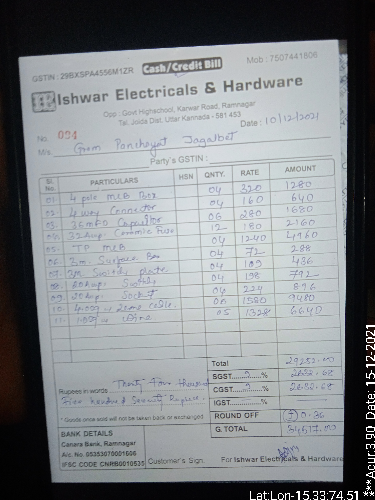 GSTIN : 29BXSPA4556M1ZR Cash/Credit Bill Mob : 7507441806
Ishwar Electricals & Hardware
Opp : Govt Highschool, Karwar Road, Ramnagar
Tal. Joida Dist. Uttar Kannada - 581 453
No. 034 Date : 10/12/2021
M/s Gram Panchayat Jagalbet
Party's GSTIN :
Sl. No. PARTICULARS HSN QNTY. RATE AMOUNT
01. 4 pole MCB Box 04 320 1280
02. 4 way Connector 04 160 640
03. 36 mfd Capacitor 06 280 1680
04. 32 Amp Ceramic Fuse 12 180 2160
05. TP MCB 04 1240 4960
06. 3m. Surface Box 04 72 288
07. 3m plate 04 109 436
08. 04 198 792
09. Socket 04 224 896
10. 06 1580 9480
11. 05 1328 6640
Total 29252.00
Rupees in words Thirty Four thousand SGST 9 % 2632.68
Five hundred Seventy Rupees. CGST 9 % 2632.68
IGST %
* Goods once sold will not be taken back or exchanged ROUND OFF 0.36
G.TOTAL 34517.00
BANK DETAILS
Canara Bank, Ramnagar
A/c. No. 05353070001606
IFSC CODE CNRB0010535 Customer's Sign. For Ishwar Electricals & Hardware
Lat:Lon-15.5334:74.51 ***Acur:3.90 Date: 15-12-2021